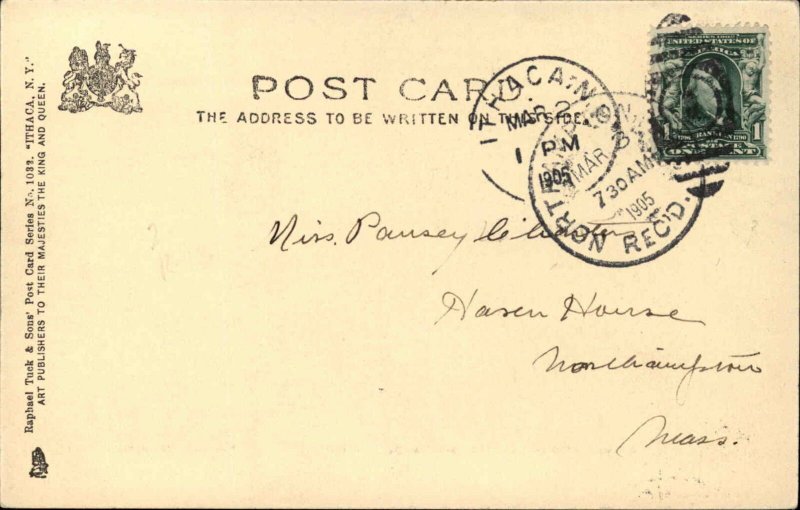 POST CARD
THE ADDRESS TO BE WRITTEN ON THIS SIDE.
Raphael Tuck & Sons' Post Card Series No. 1032. "ITHACA, N. Y."
ART PUBLISHERS TO THEIR MAJESTIES THE KING AND QUEEN.
ITHACA, N.
MAR 2
1 PM
1905
NORTH
MAR 3
730 AM
1905
REC'D.
SERIES 1902
UNITED STATES OF
1 FRANKLIN 1
ONE CENT
Miss. Pansey
Haven House
Northampton
Mass.